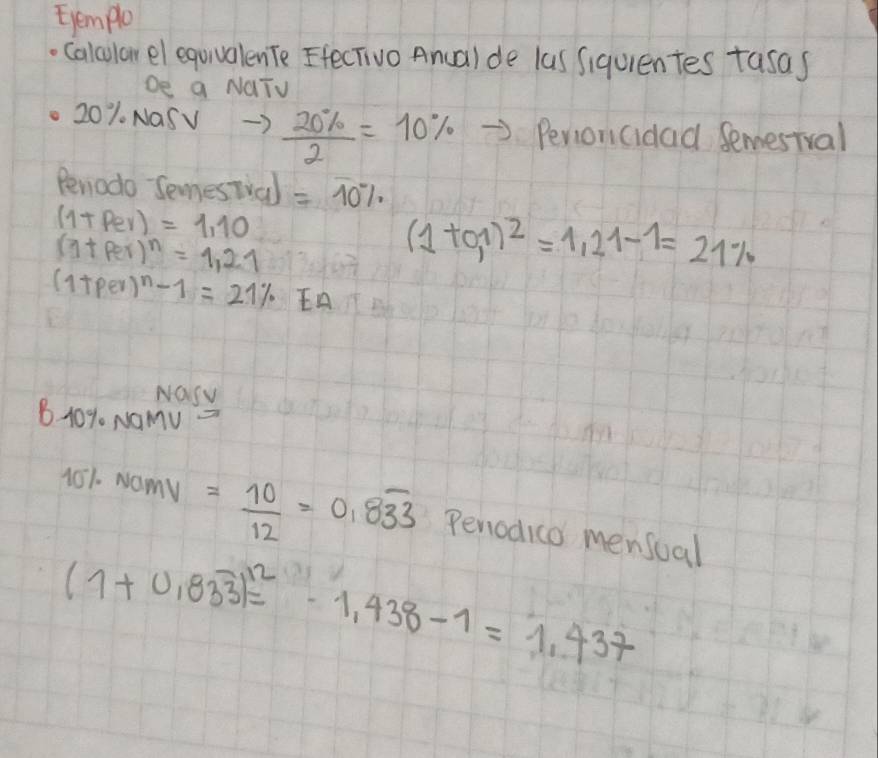 Ejemplo
• Calcular el equivalente Efectivo Anual de las siguientes tasas
De a NaTV
• 20% NaSV → 20%/2 = 10% → Perioricidad Semestral
Periodo Semestral = 10%.
(1+Per) = 1,10
(1+Per)ⁿ = 1,21
(1+per)ⁿ-1 = 21% EA
(1+0,1)² = 1,21-1= 21%
NaSV
B 10% NaMV =
10% NamV = 10/12 = 0,833 Periodico mensual
(1+0,833)¹² = 1,438-1 = 1,437